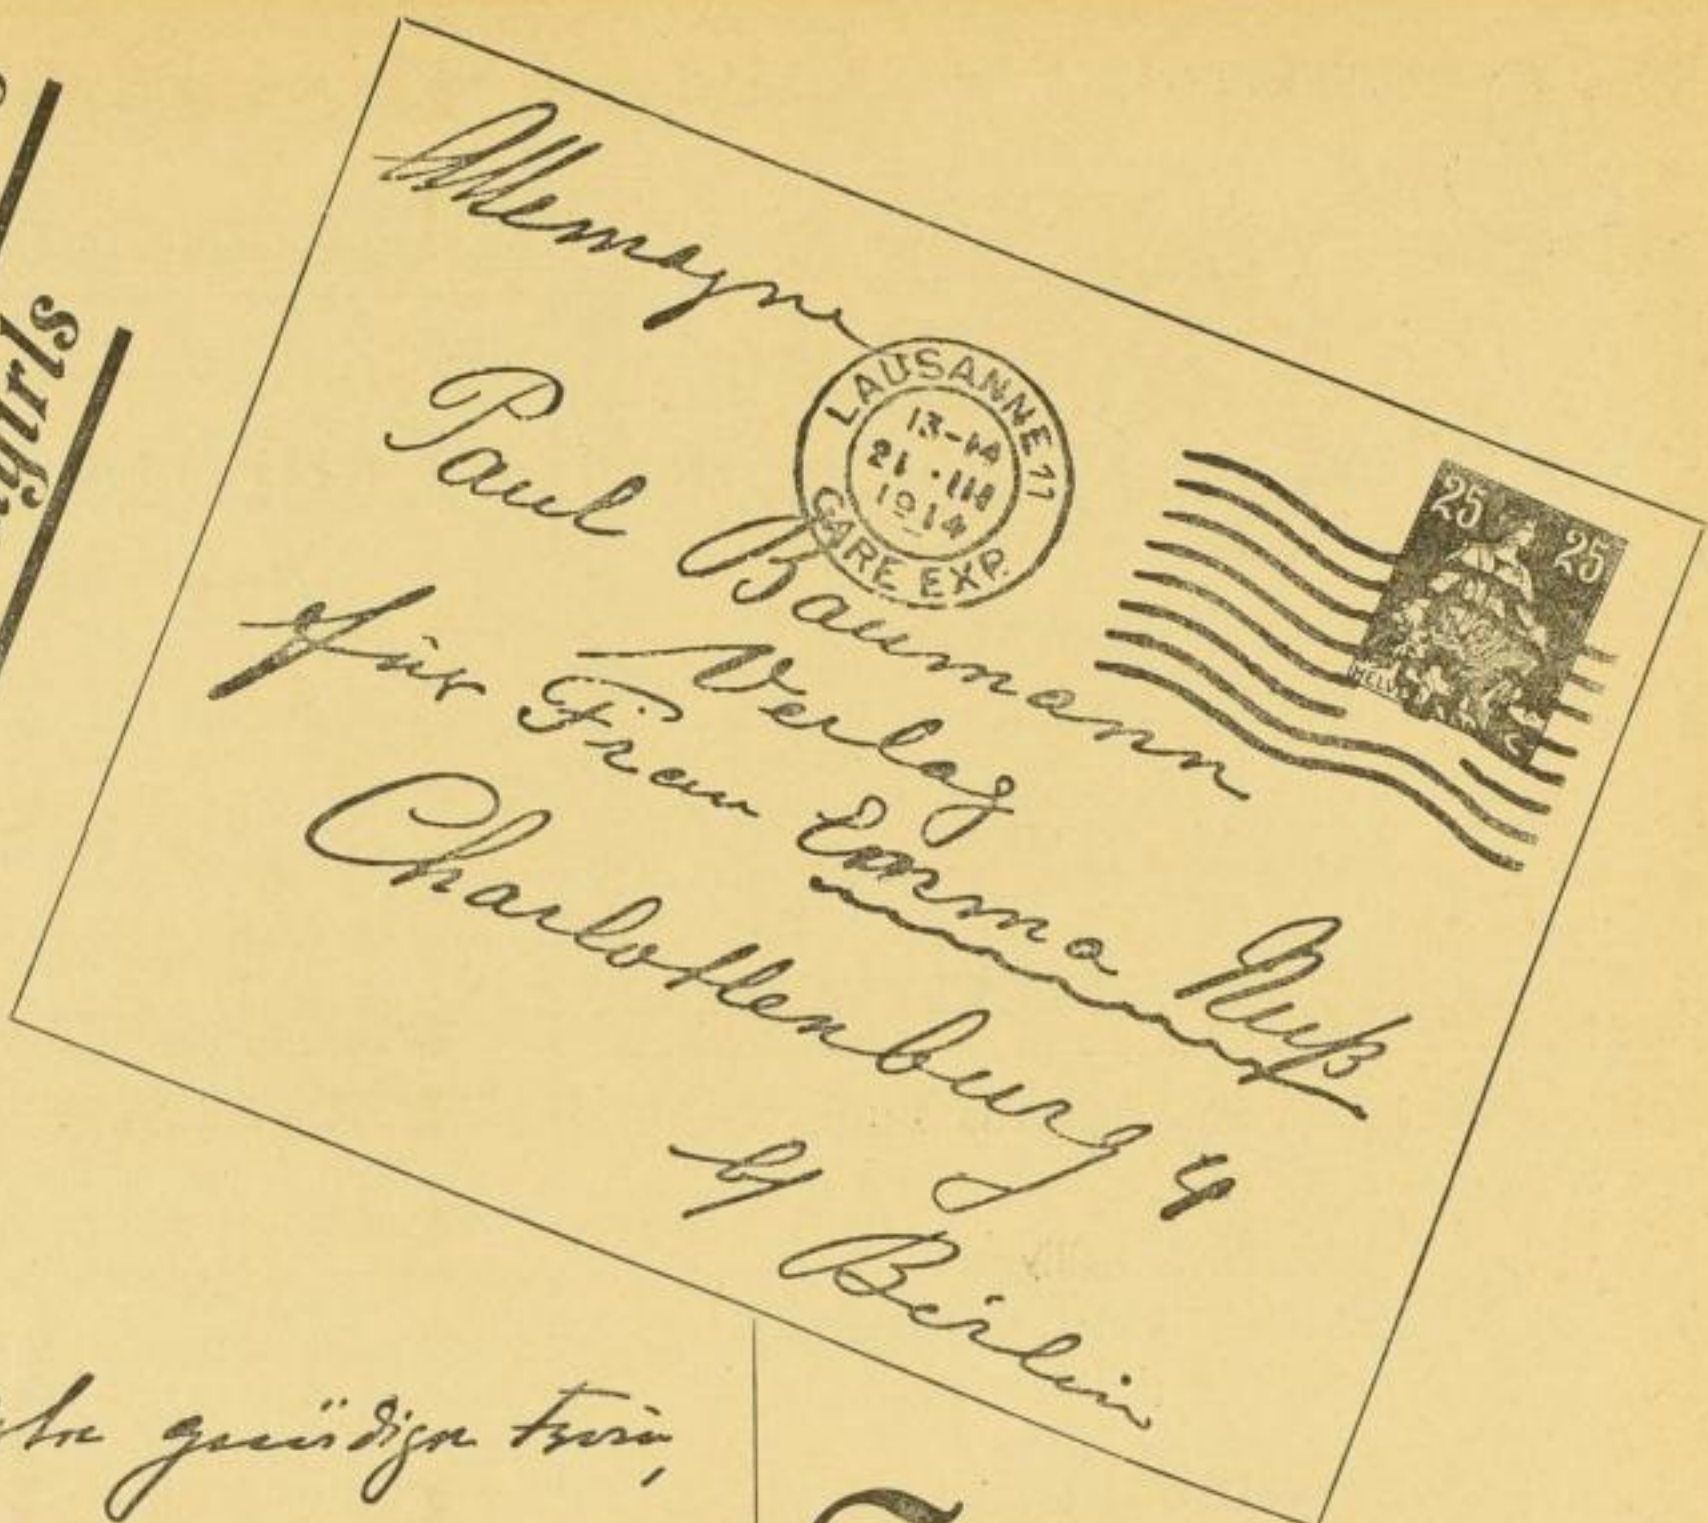 girls
Allemagne
LAUSANNE 11
13-14
21 · III
1914
GARE EXP.
25 25
HELV
Paul Baumann
Verlag
für Frau Emma Nuß
Charlottenburg 4
b/ Berlin
gnädige Frau,